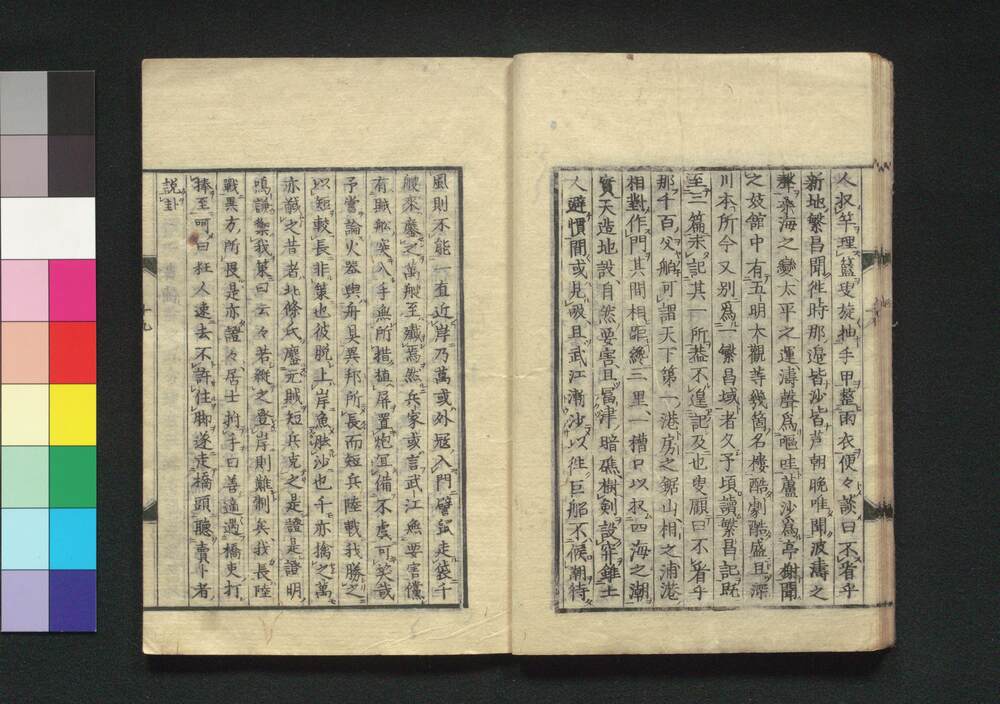 人収竿理籃叟旋抽手甲整雨衣便々談曰不省乎
新地繁昌聞往時那邉皆沙皆芦朝晩唯聞波濤之
聲桑海之變太平之運濤聲爲嘔哇蘆沙爲亭榭聞
之妓館中有五明大觀等幾箇名樓酷劇酷盛且深
川本所今又別爲一繁昌域者久予頃讀繁昌記既
至三篇未記其一所葢不遑記及也叟顧曰不省乎
那千百父舶可謂天下第一港房之鋸山相之浦港
相對作門其間相距纔三里一槽口以収四海之潮
實天造地設自然要害且冨津暗礁樹劍設穽雖土
人避慣間或見吸且武江漸沙以往巨舶不候潮待
風則不能一直近岸乃萬或外冦入門譬鼠走袋千
艘來鏖之萬艘至殱焉然兵家或言武江無要害儻
有賊舩突入手無所措植屏置炮冝備不虞可笑哉
予嘗論火器與舟具異邦所長而短兵陸戰我勝之
以短較長非策也彼脱上岸魚陸沙也千亦擒之萬
亦馘之昔者北條氏鏖元賊短兵克之是證是證明
鴻謙禦我策曰云々若縱之登岸則難制矣我長陸
戰異方所畏是亦證々居士拊手曰善適遇橋吏打
捧至呵曰狂人速去不許住脚遂走橋頭聽賣卜者
説卦
十九